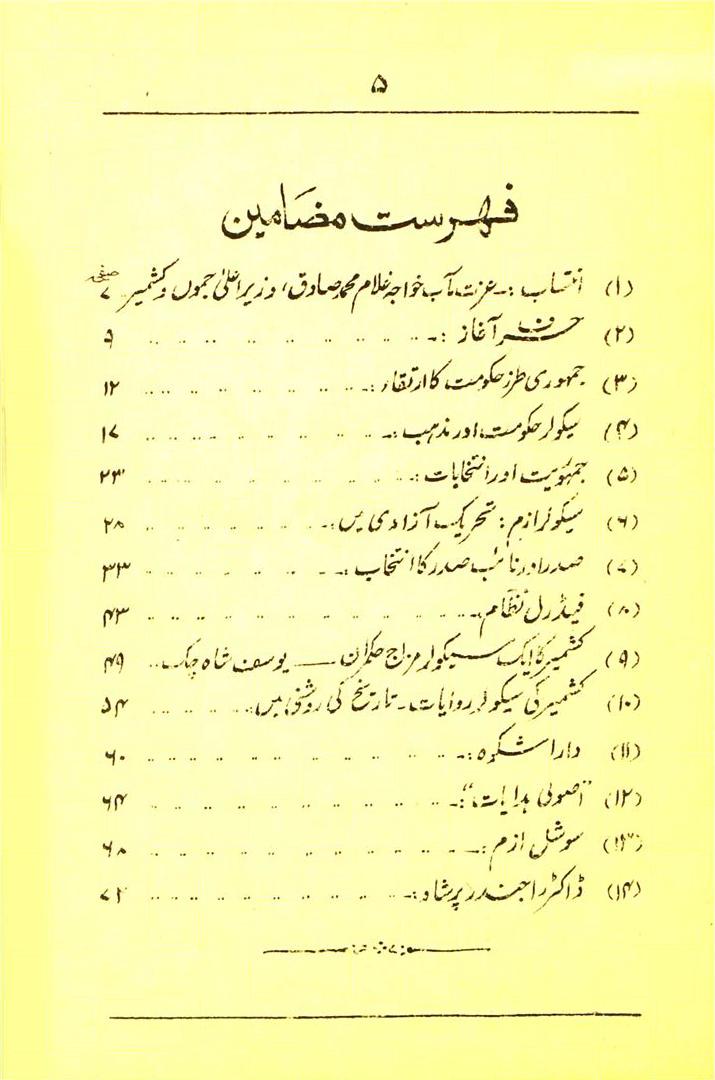 ۵
فہرست مضامین
صفحہ
(۱) انتساب :۔ عزت مآب خواجہ غلام محمد صادق، وزیر اعلیٰ جموں و کشمیر ۷
(۲) حرف آغاز :۔ ۹
(۳) جمہوری طرز حکومت کا ارتقاء :۔ ۱۲
(۴) سیکولر حکومت اور مذہب :۔ ۱۷
(۵) جمہوریت اور انتخابات :۔ ۲۳
(۶) سیکولرازم : تحریک آزادی میں :۔ ۲۸
(۷) صدر اور نائب صدر کا انتخاب :۔ ۳۳
(۸) فیڈرل نظام ۴۳
(۹) کشمیر کا ایک سیکولر مزاج حکمران ــــ یوسف شاہ چک ۴۹
(۱۰) کشمیر کی سیکولر روایات ۔ تاریخ کی روشنی میں ۵۴
(۱۱) دارا شکوہ :۔ ۶۰
(۱۲) "اصولی ہدایات" :۔ ۶۴
(۱۳) سوشل ازم :۔ ۶۸
(۱۴) ڈاکٹر راجندر پرشاد :۔ ۷۲